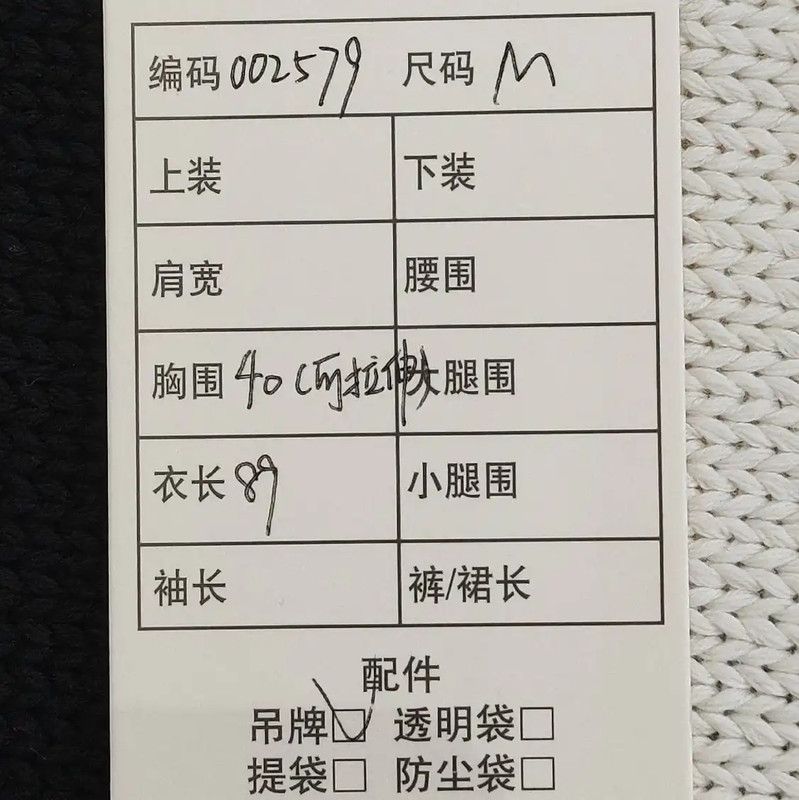 编码 002579 尺码 M
上装 下装
肩宽 腰围
胸围 40（可拉伸） 大腿围
衣长 89 小腿围
袖长 裤/裙长
配件
吊牌☑ 透明袋□
提袋□ 防尘袋□